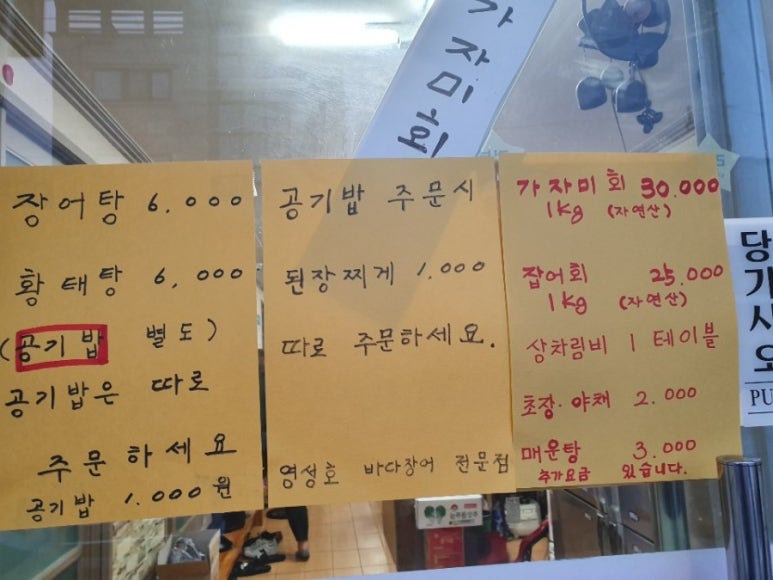 가자미회
장어탕 6,000
황태탕 6,000
(공기밥 별도)
공기밥은 따로
주문하세요
공기밥 1.000원
공기밥 주문시
된장찌게 1.000
따로 주문하세요.
영성호 바다장어 전문점
가자미회 30.000
1kg (자연산)
잡어회 25.000
1kg (자연산)
상차림비 1 테이블
초장·야채 2.000
매운탕 3.000
추가요금 있습니다.
당기시오
PU